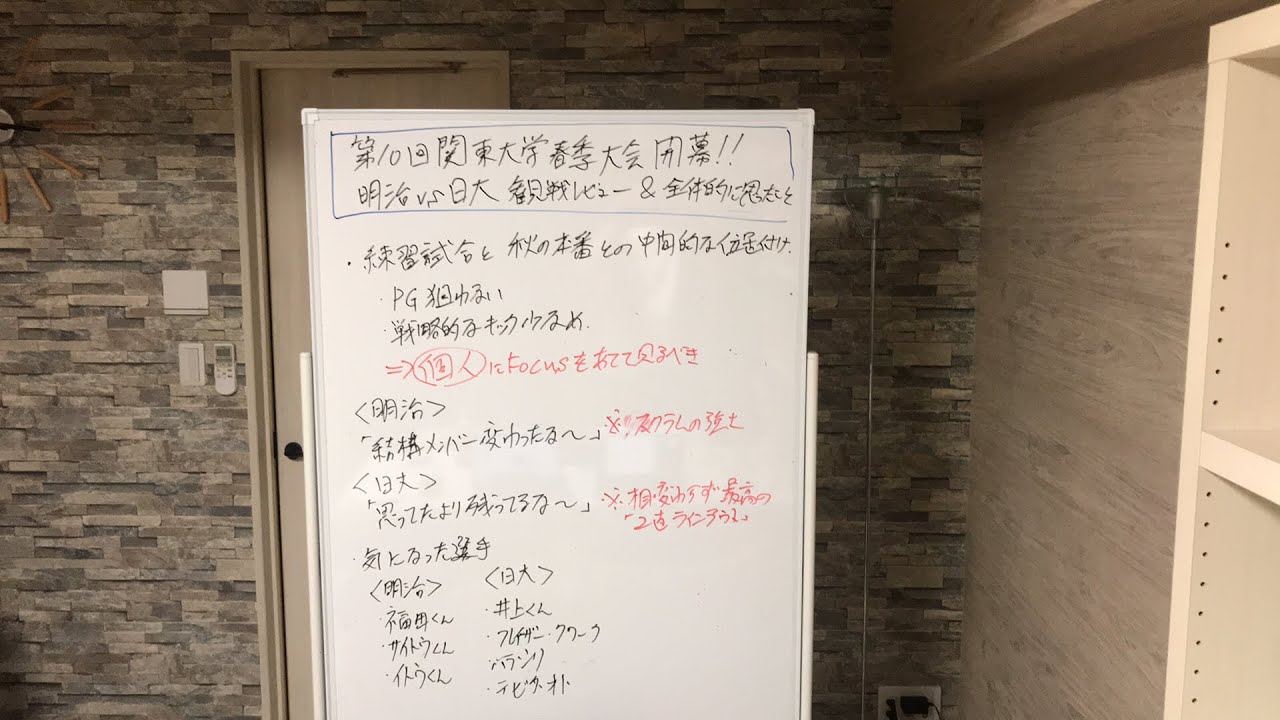 第10回関東大学春季大会開幕!!
明治vs日大 観戦レビュー&全体的に思ったこと
・練習試合と秋の本番との中間的な位置付け.
・PG狙わない
・戦略的なキック少なめ.
⇒個人にFocusをあてて見るべき
<明治>
「結構メンバー変わったな〜」
※スクラムの強さ
<日大>
「思ってたより残ってるな〜」
※相変わらず最高の
「2直ラインアウト」
・気になった選手
<明治>
・福田くん
・サイトウくん
・イトウくん
<日大>
・井上くん
・フレイザー・クワーク
・ハラシリ
・テビタ・オト